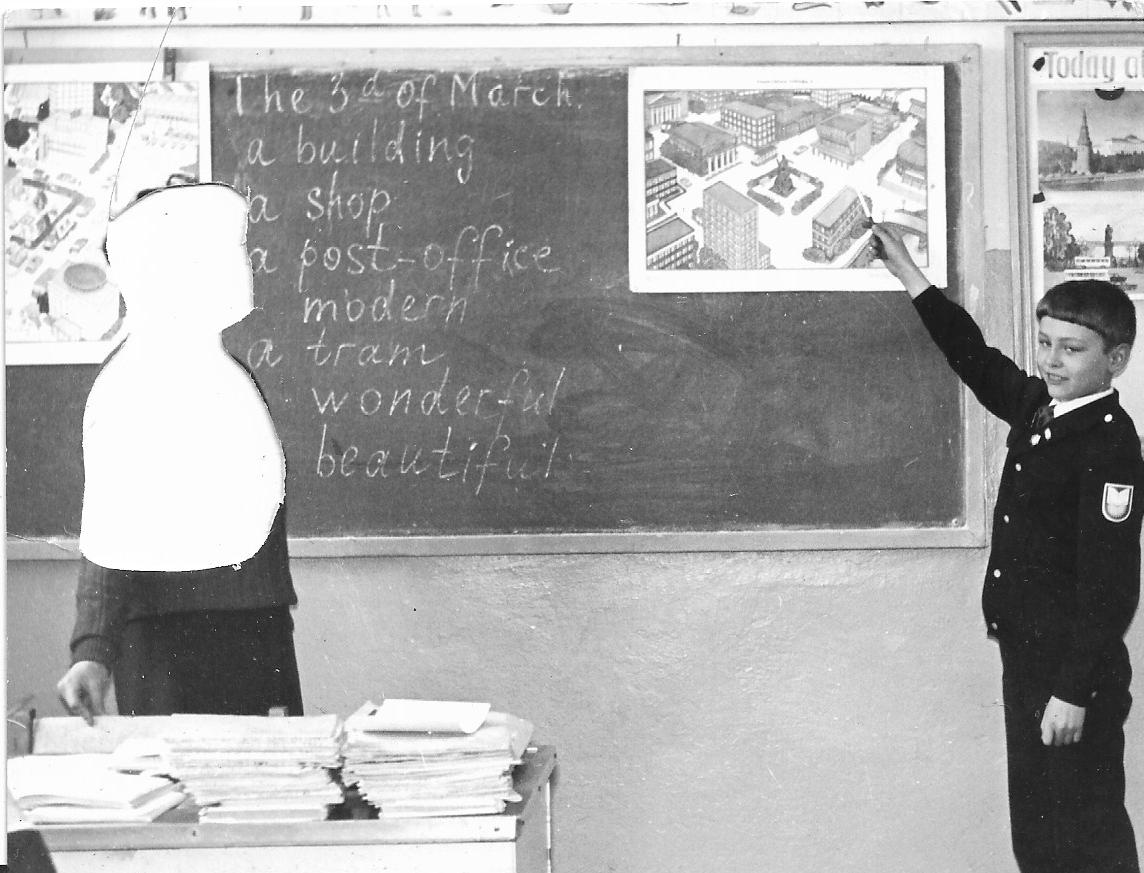 The 3d of March.
a building
a shop
a post-office
modern
a tram
wonderful
beautiful
Today a